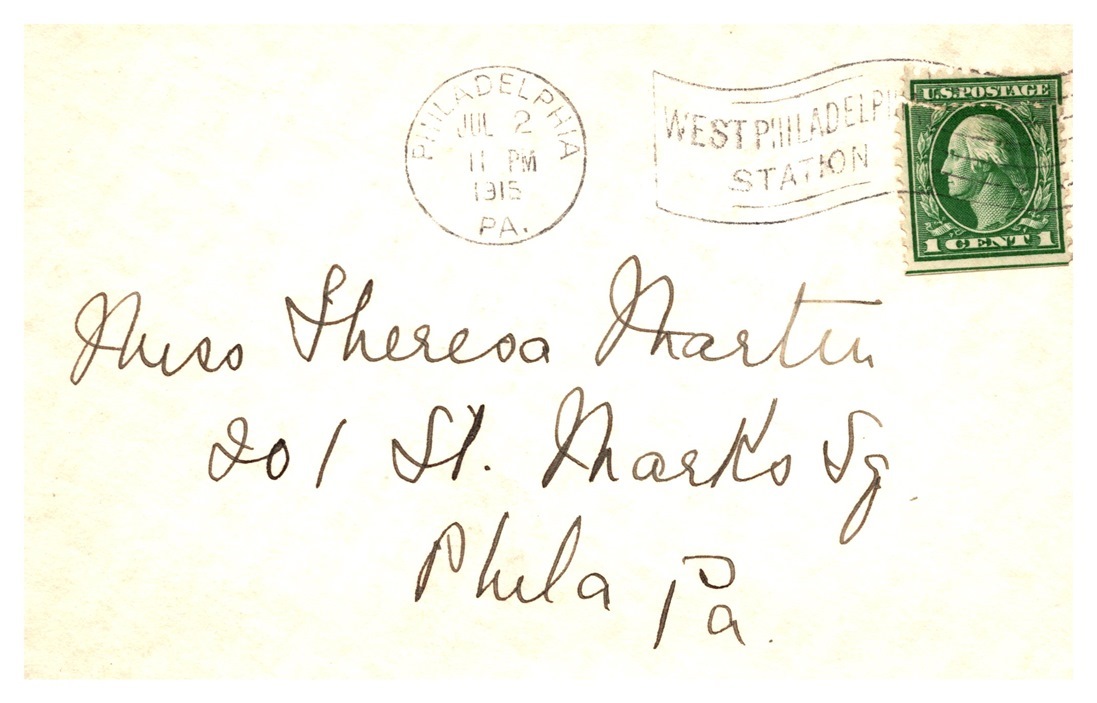 PHILADELPHIA
JUL 2
11 PM
1915
PA.
WEST PHILADELPHI
STATION
U.S. POSTAGE
1 CENT 1
Miss Theresa Martin
201 St. Marks Sq.
Phila Pa.